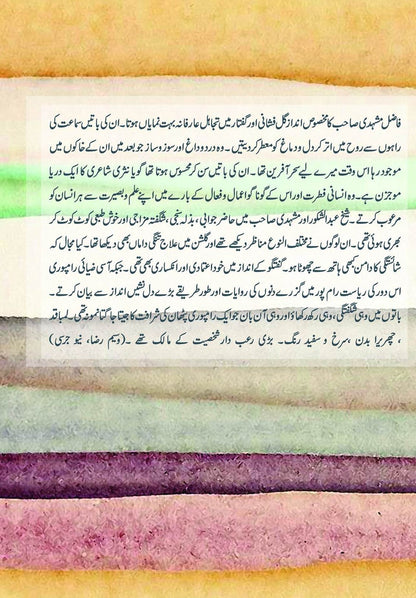 فاضل مشہدی صاحب کا مخصوص انداز گل فشانی اور گفتار میں تجاہل عارفانہ بہت نمایاں ہوتا۔ ان کی باتیں سماعت کی
راہوں سے روح میں اتر کر دل و دماغ کو معطر کر دیتیں۔ وہ درد و داغ اور سوز و ساز جو بعد میں ان کے خاکوں میں
موجود رہا اس وقت میرے لیے سحر آفرین تھا۔ ان کی باتیں سن کر محسوس ہوتا تھا گویا نثری شاعری کا ایک دریا
موجزن ہے۔ وہ انسانی فطرت اور اس کے گوناگوں اعمال و افعال کے بارے میں اپنے علم و بصیرت سے ہر انسان کو
مرعوب کرتے۔ شیخ عبدالشکور اور مشہدی صاحب میں حاضر جوابی، بذلہ سنجی، شگفتہ مزاجی اور خوش طبعی کوٹ کوٹ کر
بھری ہوئی تھی۔ ان لوگوں نے مختلف النوع مناظر دیکھے تھے اور گلشن میں علاج تنگی داماں بھی دیکھا تھا۔ کیا مجال کہ
شائستگی کا دامن کبھی ہاتھ سے چھوٹا ہو۔ گفتگو کے انداز میں خود اعتمادی اور انکساری بھی تھی۔ جبکہ آسی ضیائی رامپوری
اس دور کی ریاست رام پور میں گزرے دنوں کی روایات اور طور طریقے بڑے دل نشیں انداز سے بیان کرتے۔
باتوں میں وہی شگفتگی، وہی رکھ رکھاؤ اور وہی آن بان جو ایک رامپوری پٹھان کی شرافت کا جیتا جاگتا نمونہ تھی۔ لمبا قد
، چھریرا بدن، سرخ و سفید رنگ۔ بڑی رعب دار شخصیت کے مالک تھے۔ (وسیم رضا، نیو جرسی)